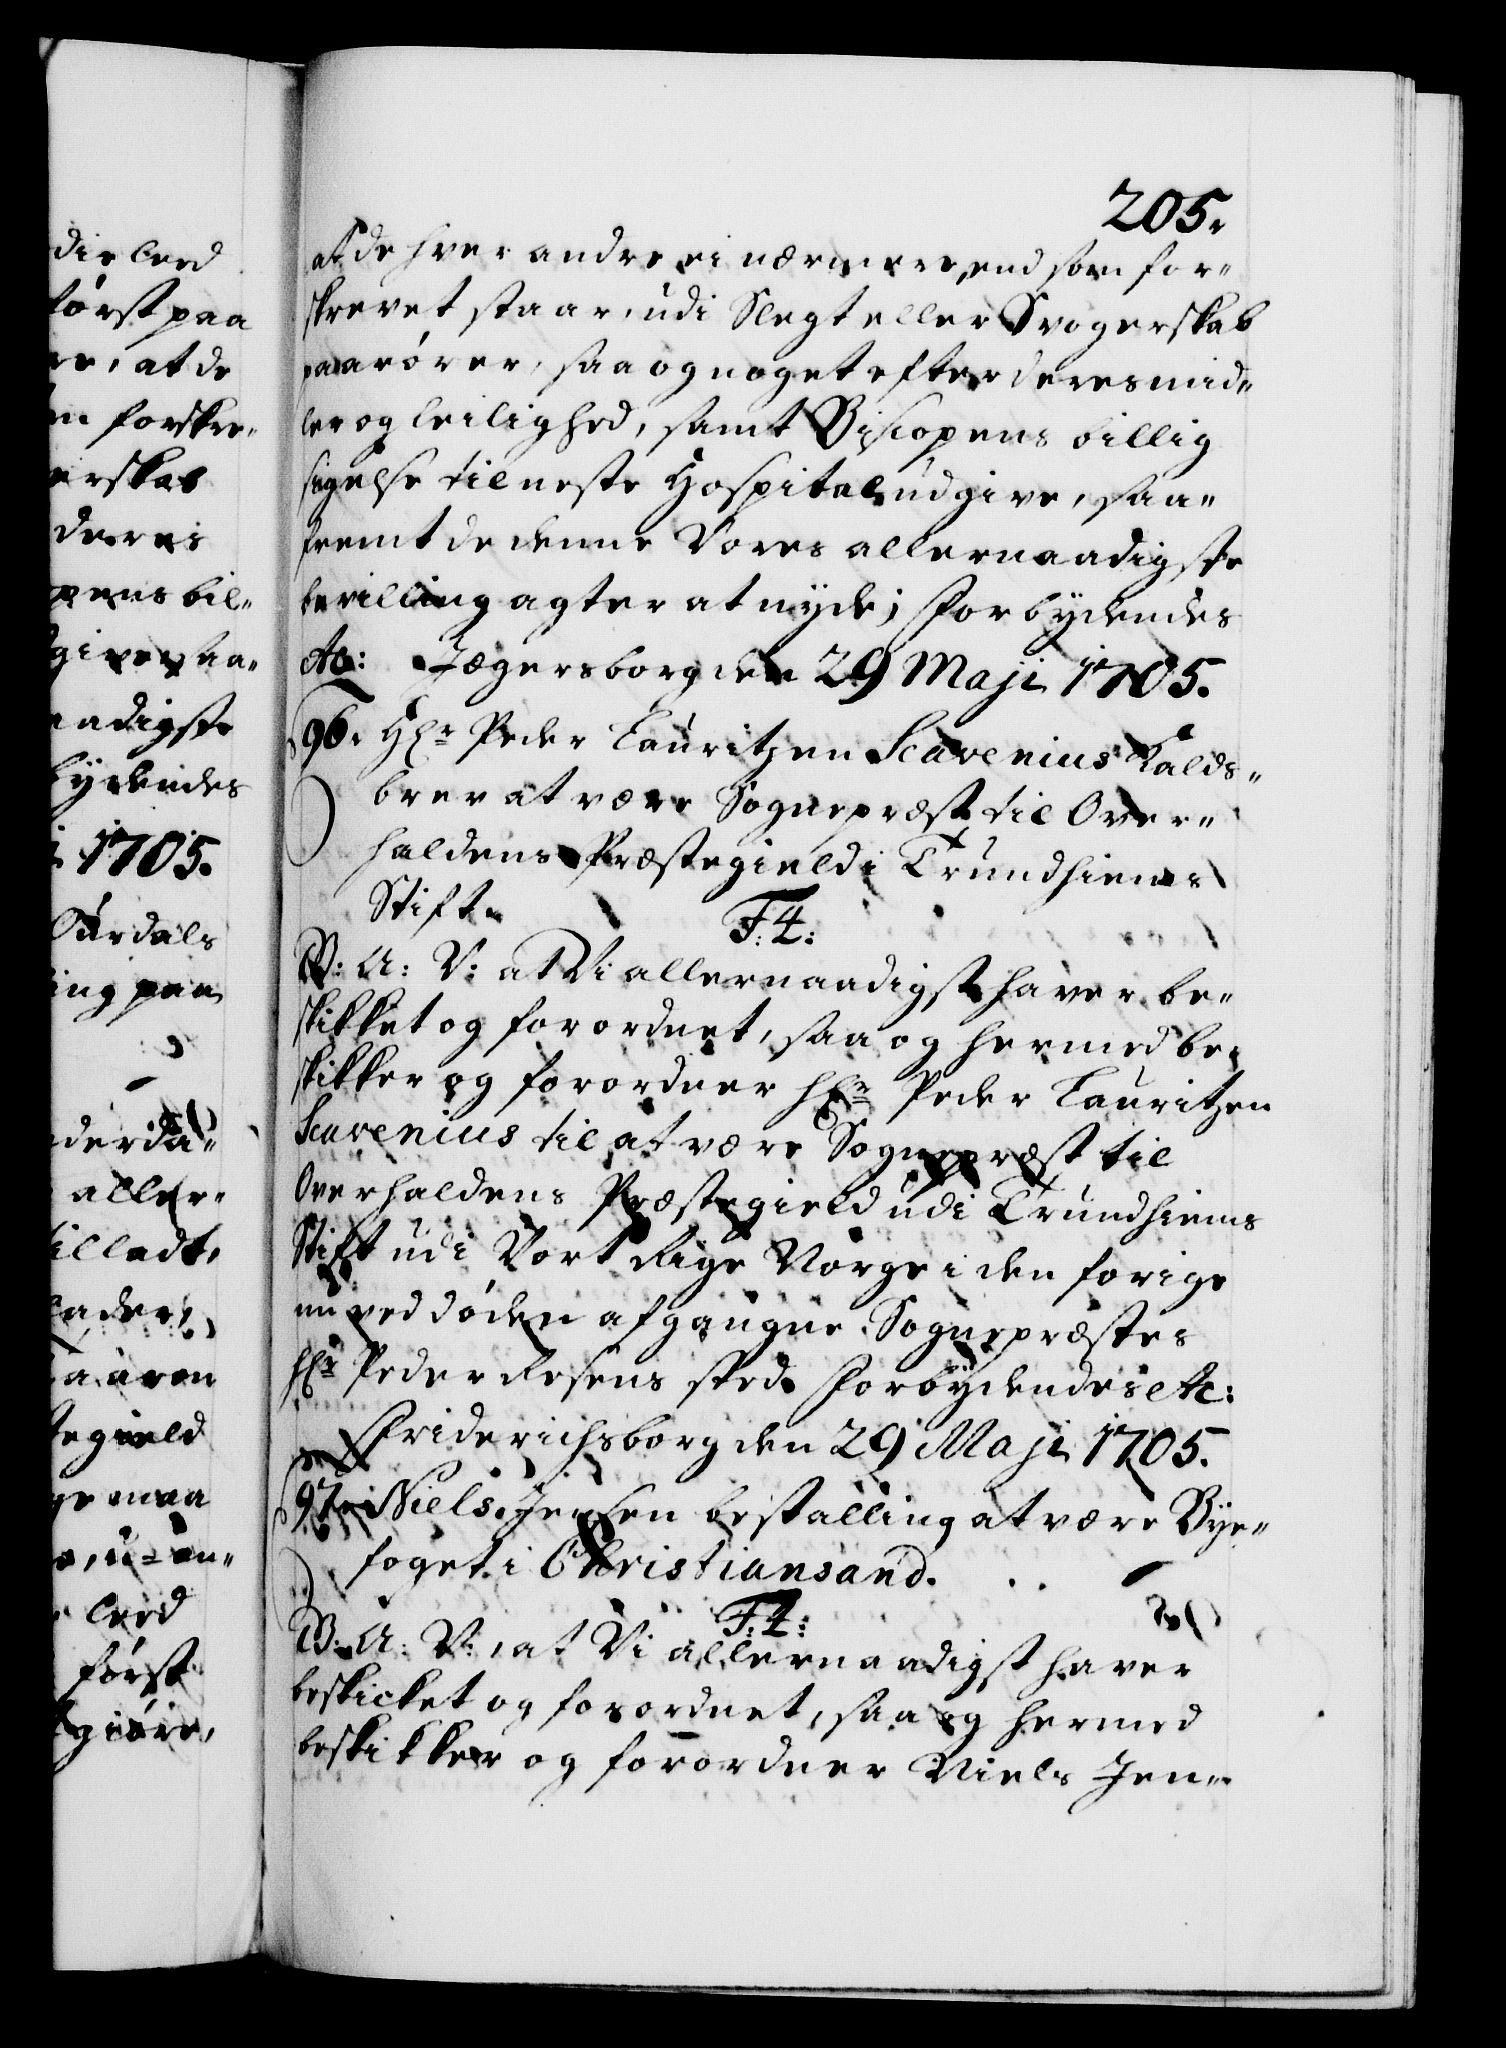 205.
at de hver andre ei nærmere, end som for„
skrevet staar, udi Slegt eller Svogerskab
paarører, saa og noget efter deres mid„
ler og leilighed, samt Biscopens billig
sigelse til neste Hospital udgive, saa„
fremt de denne Vores allernaadigste
bevilling agter at nyde; Forbydendes
etc: Jægersborg den 29 Maji 1705.
96. Hr Peder Lauritzen Scavenius Kalds„
brev at være Sognepræst til Over„
haldens Præstegield i Trundhiems
Stift.
F: 4:
V: A: V: at Vi allernaadigst haver be„
skikket og forordnet, saa og hermed be„
skikker og forordner Hr Peder Lauritzen
Scavenius til at være Sognepræst til
Overhaldens Præstegield udi Trundhiems
Stift udi Vort Rige Norge i den forige
nu ved døden afgangne Sognepræstes
Hr Peder Resens sted. Forbydendes etc:
Friderichsborg den 29 Maji 1705.
97. Niels Jensen bestalling at være Bye„
foget i Christiansand.
F: 4:
V: A: V:, at Vi allernaadigst haver
beskicket og forordnet, saa og hermed
beskikker og forordner Niels Jen„
die leed
først paa
at de
forskre„
erskab
deres
pens bil„
give, saa„
aadigste
bydendes
1705.
Ourdals
ing paa
aller„
tilladt,
lader,
aaren
tegield
maa
leed
først
giøre,